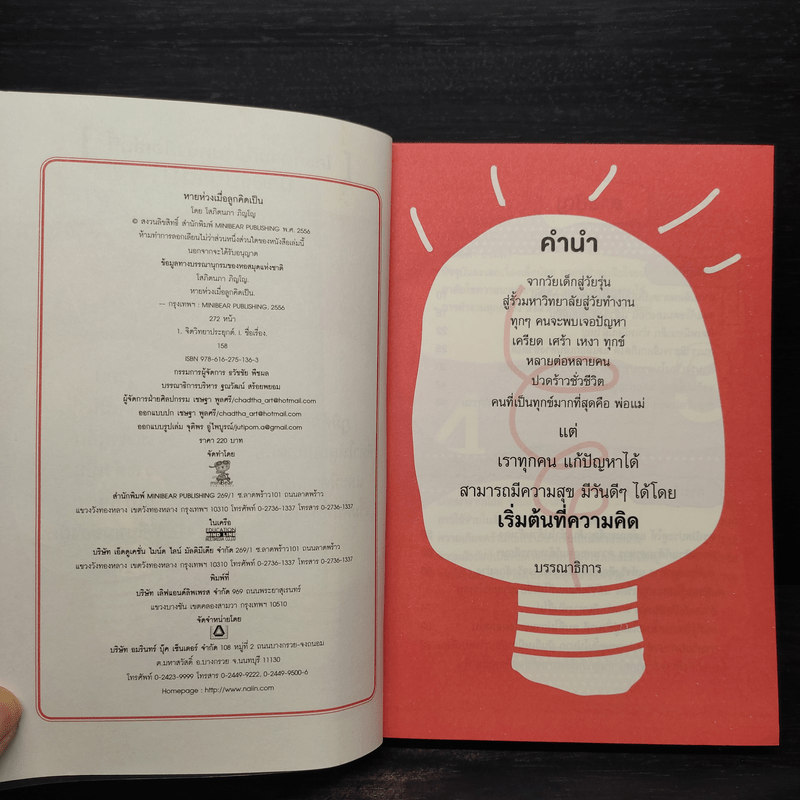 หายห่วงเมื่อลูกคิดเป็น
โดย โสภิตนภา ภิญโญ
© สงวนลิขสิทธิ์ สำนักพิมพ์ MINIBEAR PUBLISHING พ.ศ. 2556
ห้ามทำการลอกเลียนไม่ว่าส่วนหนึ่งส่วนใดของหนังสือเล่มนี้
นอกจากจะได้รับอนุญาต
ข้อมูลทางบรรณานุกรมของหอสมุดแห่งชาติ
โสภิตนภา ภิญโญ.
หายห่วงเมื่อลูกคิดเป็น.
— กรุงเทพฯ : MINIBEAR PUBLISHING, 2556
272 หน้า
1. จิตวิทยาประยุกต์. I. ชื่อเรื่อง.
158
ISBN 978-616-275-136-3
กรรมการผู้จัดการ อวัชชัย พืชผล
บรรณาธิการบริหาร ฐณวัฒน์ สร้อยพยอม
ผู้จัดการฝ่ายศิลปกรรม เชษฐา พูลศรี/chadtha_art@hotmail.com
ออกแบบปก เชษฐา พูลศรี/chadtha_art@hotmail.com
ออกแบบรูปเล่ม จุติพร อู่ไพบูรณ์/jutiporn.a@gmail.com
ราคา 220 บาท
จัดทำโดย
สำนักพิมพ์ MINIBEAR PUBLISHING 269/1 ซ.ลาดพร้าว101 ถนนลาดพร้าว
แขวงวังทองหลาง เขตวังทองหลาง กรุงเทพฯ 10310 โทรศัพท์ 0-2736-1337 โทรสาร 0-2736-1337
ในเครือ
EDUCATION
MIND LINE
บริษัท เอ็ดดูเคชั่น ไมนด์ ไลน์ มัลติมีเดีย จำกัด 269/1 ซ.ลาดพร้าว101 ถนนลาดพร้าว
แขวงวังทองหลาง เขตวังทองหลาง กรุงเทพฯ 10310 โทรศัพท์ 0-2736-1337 โทรสาร 0-2736-1337
พิมพ์ที่
บริษัท เลิฟแอนด์ลิพเพรส จำกัด 969 ถนนพระยาสุเรนทร์
แขวงบางชัน เขตคลองสามวา กรุงเทพฯ 10510
จัดจำหน่ายโดย
บริษัท อมรินทร์ บุ๊ค เซ็นเตอร์ จำกัด 108 หมู่ที่ 2 ถนนบางกรวย-จงถนอม
ต.มหาสวัสดิ์ อ.บางกรวย จ.นนทบุรี 11130
โทรศัพท์ 0-2423-9999 โทรสาร 0-2449-9222, 0-2449-9500-6
Homepage : http://www.naiin.com
คำนำ
จากวัยเด็กสู่วัยรุ่น
สู่รั้วมหาวิทยาลัยสู่วัยทำงาน
ทุกๆ คนจะพบเจอปัญหา
เครียด เศร้า เหงา ทุกข์
หลายต่อหลายคน
ปวดร้าวชั่วชีวิต
คนที่เป็นทุกข์มากที่สุดคือ พ่อแม่
แต่
เราทุกคน แก้ปัญหาได้
สามารถมีความสุข มีวันดีๆ ได้โดย
เริ่มต้นที่ความคิด
บรรณาธิการ